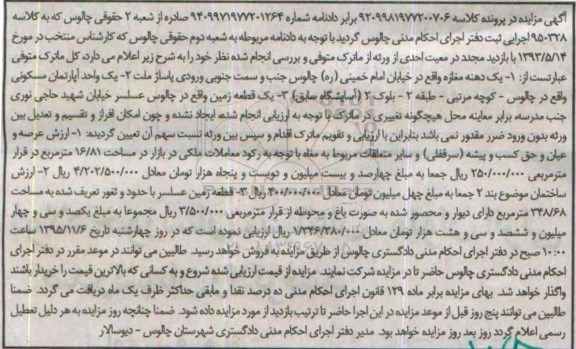 آگهی مزایده در پرونده کلاسه ۹۲۰۹۹۸۱۹۷۷۲۰۰۷۰۶ برابر دادنامه شماره ۹۴۰۹۹۷۱۹۷۷۲۰۱۲۶۴ صادره از شعبه ۲ حقوقی چالوس که به کلاسه
۹۵۰۳۲۸ اجرایی ثبت دفتر اجرای احکام مدنی چالوس گردید با توجه به دادنامه مربوطه به شعبه دوم حقوقی چالوس که کارشناس منتخب در مورخ
۱۳۹۳/۵/۱۴ با بازدید مجدد در معیت احدی از ورثه از ماترک متوفی و بررسی انجام شده نظر خود را به شرح زیر اعلام می دارد. کل ماترک متوفی
عبارتست از: ۱- یک دهنه مغازه واقع در خیابان امام خمینی (ره) چالوس جنب و سمت جنوبی ورودی پاساژ ملت ۲- یک واحد آپارتمان مسکونی
واقع در چالوس - کوچه مرتبی - طبقه ۲ - بلوک ۲ (آسایشگاه سابق) ۳- یک قطعه زمین واقع در چالوس عسلسر خیابان شهید حاجی نوری
جنب مدرسه. برابر معاینه محل هیچگونه تغییری در ماترک با توجه به ارزیابی انجام شده، ایجاد نشده و چون امکان افراز و تقسیم و تعدیل بین
ورثه بدون ورود ضرر مقدور نمی باشد بنابراین با ارزیابی و تقویم ماترک اقدام و سپس بین ورثه نسبت سهم آن تعیین گردید: ۱- ارزش عرصه و
عیان و حق کسب و پیشه (سرقفلی) و سایر متعلقات مربوط به مغازه با توجه به رکود معاملات ملکی در بازار در مساحت ۱۶/۸۱ مترمربع در قرار
۲۵۰/۰۰۰/۰۰۰ ریال جمعا به مبلغ چهارصد و بیست میلیون و دویست و پنجاه هزار تومان معادل ۴/۲۰۲/۵۰۰/۰۰۰ ریال ۲- ارزش
ساختمان موضوع بند ۲ جمعا به مبلغ چهل میلیون تومان معادل ۴۰۰/۰۰۰/۰۰۰ ریال ۳- قطعه زمین عسلسر با حدود و ثغور تعریف شده به مساحت
۳۴۸/۶۸ مترمربع دارای دیوار و محصور شده به صورت باغ و محوطه از قرار مترمربعی ۳/۵۰۰/۰۰۰ ریال مجموعا به مبلغ یکصد و سی و چهار
میلیون و ششصد و سی و هشت هزار تومان معادل ۱/۳۴۶/۳۸۰/۰۰۰ ریال ارزیابی نموده است که در روز چهارشنبه تاریخ ۱۳۹۵/۱۱/۶ ساعت
۱۰:۰۰ صبح در دفتر اجرای احکام مدنی دادگستری چالوس از طریق مزایده به فروش خواهد رسید. طالبین می توانند در موعد مقرر در دفتر اجرای
احکام مدنی دادگستری چالوس حاضر تا در مزایده شرکت نمایند. مزایده از قیمت ارزیابی شده شروع و به کسانی که بالاترین قیمت را خریدار باشند
واگذار خواهد شد. بهای مزایده برابر ماده ۱۲۹ قانون اجرای احکام مدنی ده درصد نقدا و مابقی حداکثر ظرف یک ماه دریافت می گردد. ضمنا
طالبین می توانند پنج روز قبل از موعد مزایده در این اجرا حاضر تا ترتیب بازدید از مورد مزایده داده شود. ضمنا چنانچه روز مزایده به هر دلیل تعطیل
رسمی اعلام گردد روز بعد روز مزایده خواهد بود. مدیر دفتر اجرای احکام مدنی دادگستری شهرستان چالوس - دیوسالار